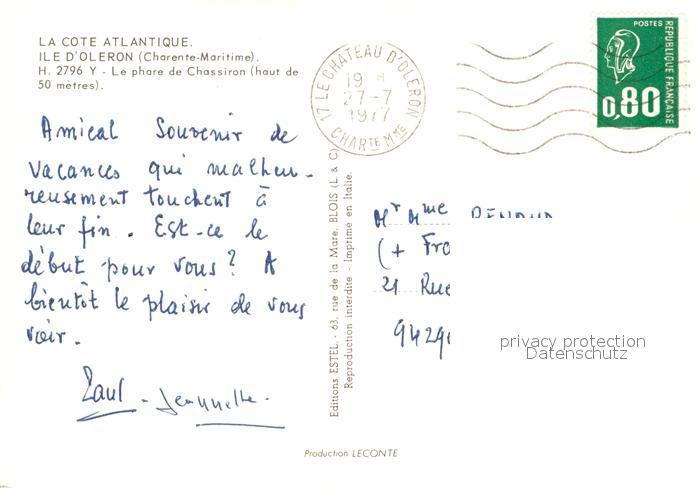 LA COTE ATLANTIQUE.
ILE D'OLERON (Charente-Maritime).
H. 2796 Y - Le phare de Chassiron (haut de
50 mètres).
Amical Souvenir de
vacances qui malheu-
reusement touchent à
leur fin. Est-ce le
début pour vous? A
bientôt le plaisir de vous
voir.
Paul - Jeannette.
17 LE CHATEAU D'OLERON
19 H
27-7
1977
CHARTE MME
POSTES
REPUBLIQUE FRANÇAISE
0,80
Editions ESTEL - 63, rue de la Mare, BLOIS (L. & C.)
Reproduction interdite - Imprimé en Italie.
Mr Mme
(+ Fro
21 Rue
9429
privacy protection
Datenschutz
Production LECONTE